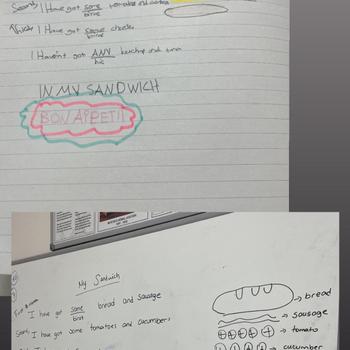 Second, I Have got some tomatoes and
biraz
Third, I Have got some cheese
biraz
I Haven't got ANY ketchup and tuna
hiç
IN MY SANDWICH
BON APPETIT
My Sandwich
I have got some bread and sausage
biraz
I have got some tomatoes and cucumbers
bread
sausage
tomato
cucumber